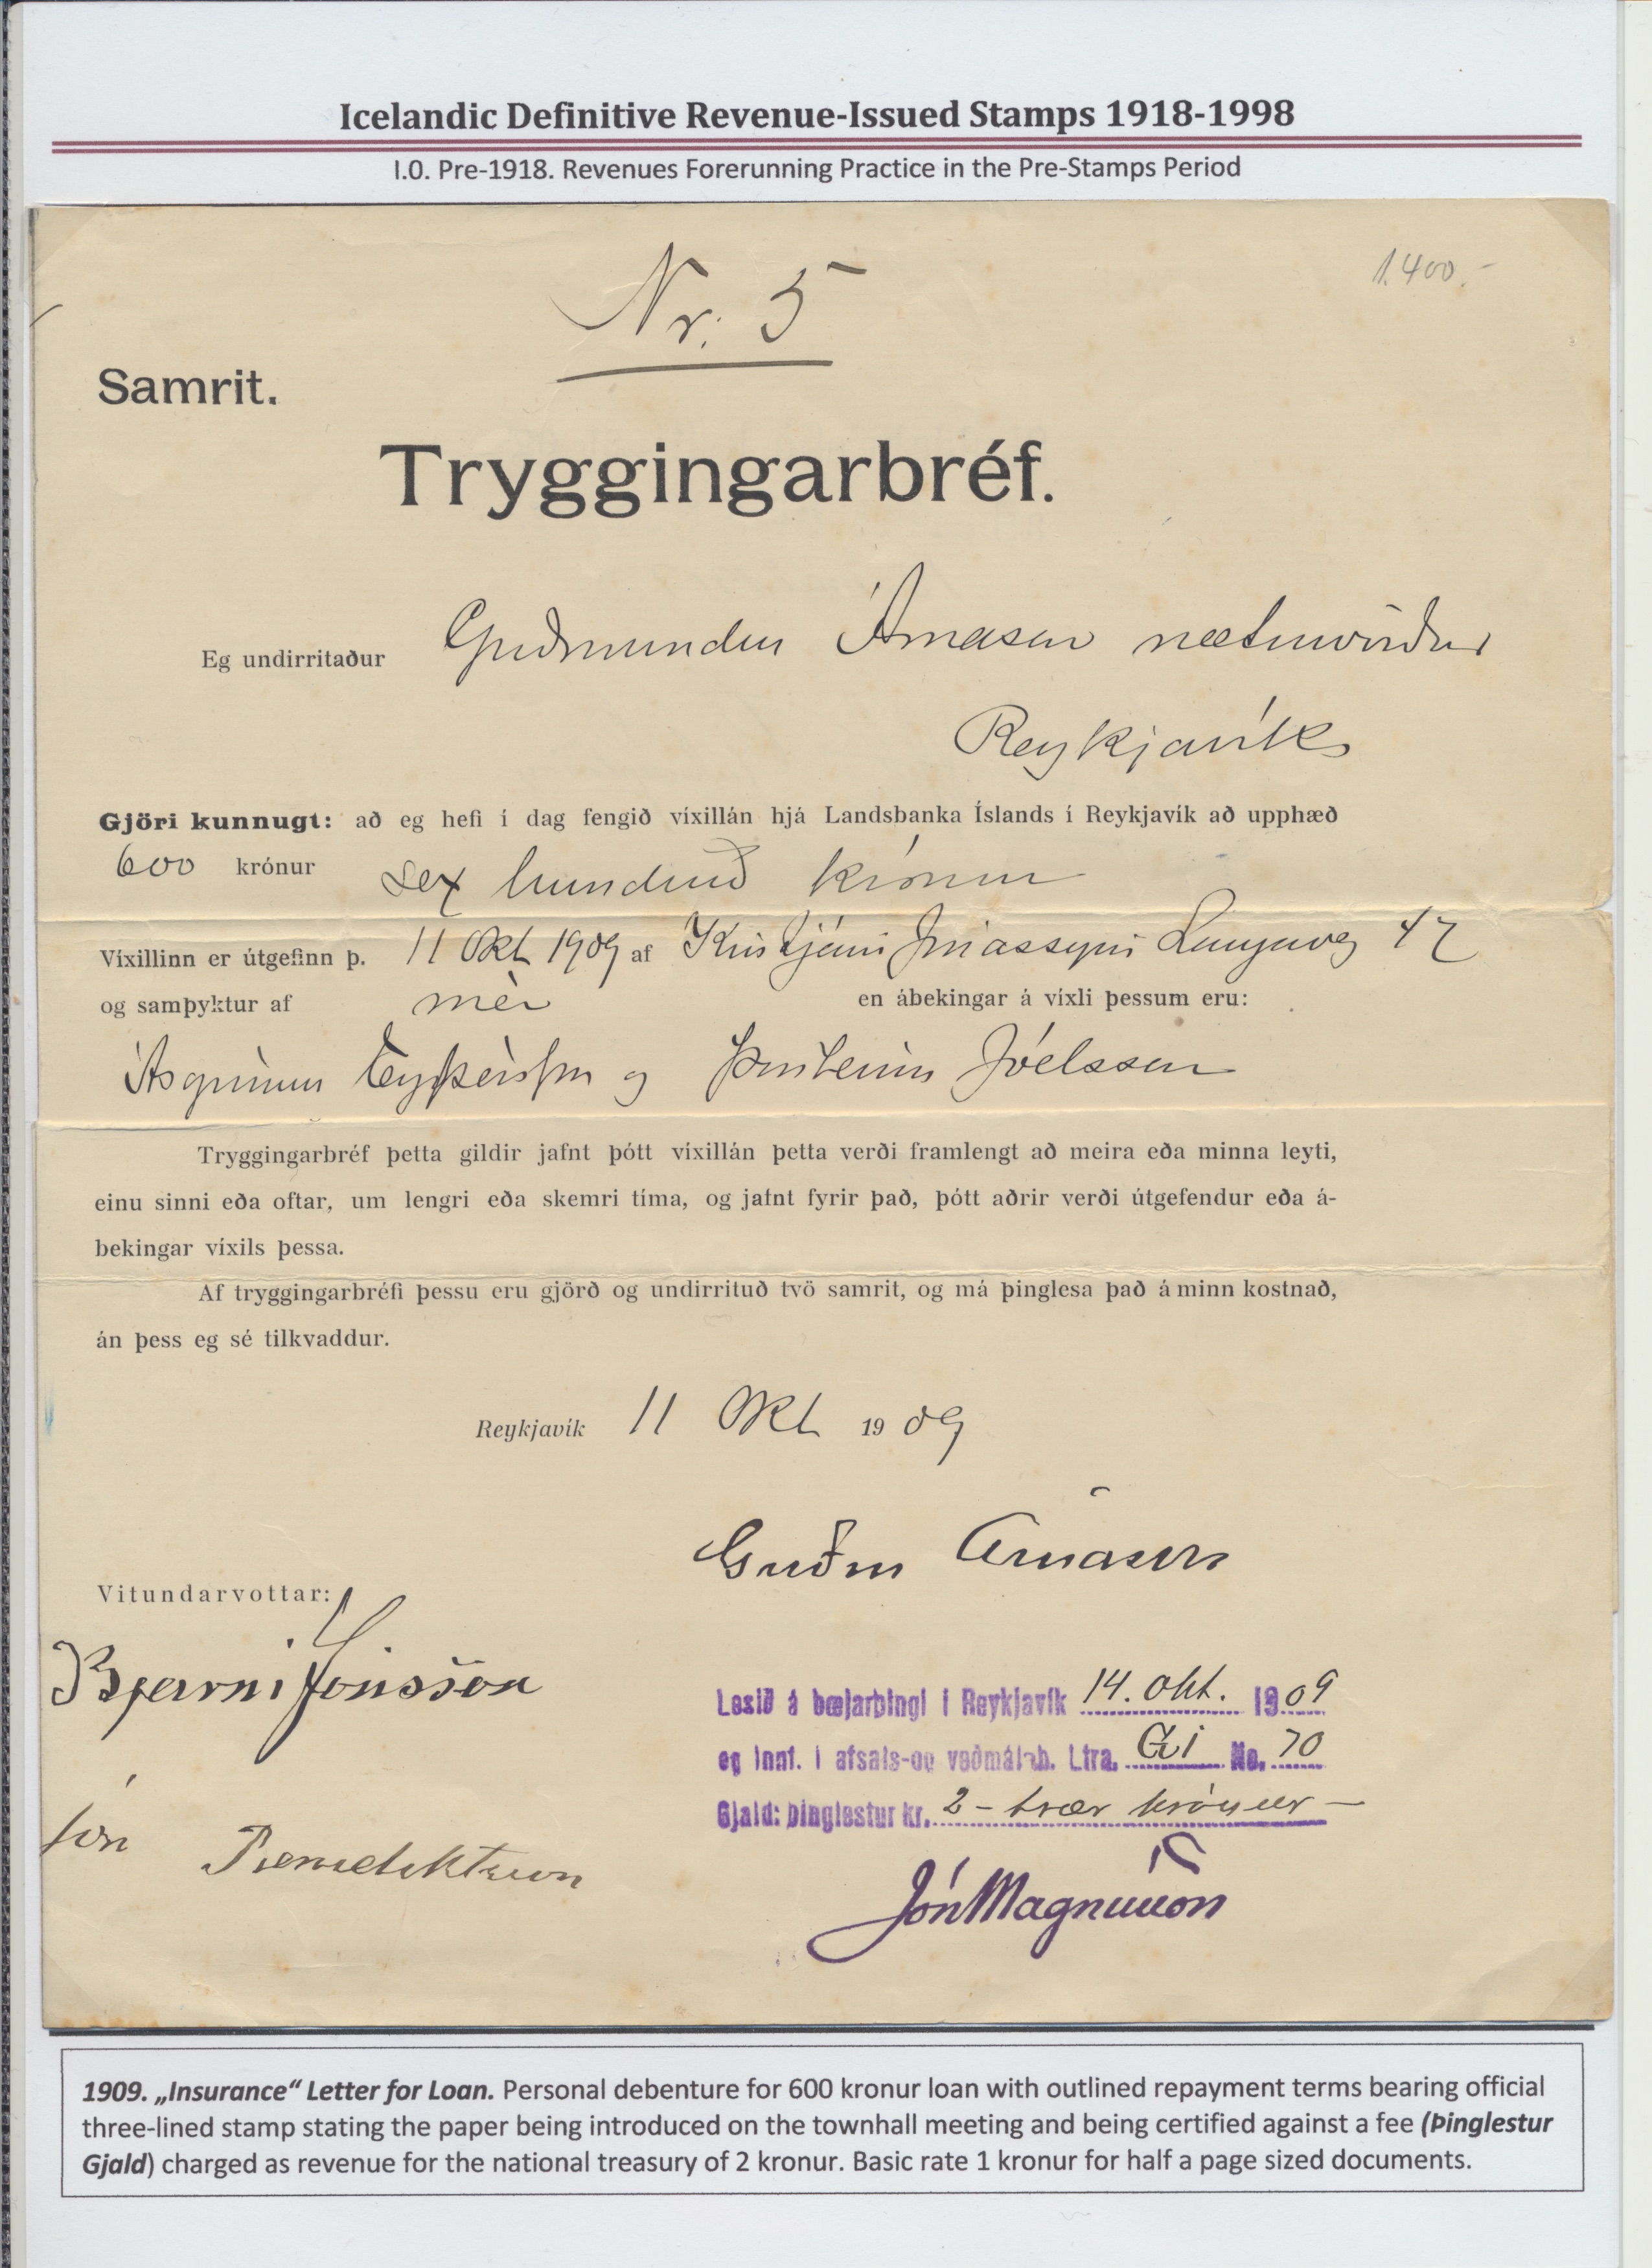 Icelandic Definitive Revenue-Issued Stamps 1918-1998
I.0. Pre-1918. Revenues Forerunning Practice in the Pre-Stamps Period
Nr. 5
1.400.-
Samrit.
Tryggingarbréf.
Eg undirritaður Guðmundur Árnason næturvörður
Reykjavík
Gjöri kunnugt: að eg hefi í dag fengið víxillán hjá Landsbanka Íslands í Reykjavík að upphæð
600 krónur sex hundruð krónur
Víxillinn er útgefinn þ. 11 Okt 1909 af Kristjáni Laugaveg
og samþyktur af mér en ábekingar á víxli þessum eru:
Ásgrímur Eyþórsson og Þorsteinn Jóelsson
Tryggingarbréf þetta gildir jafnt þótt víxillán þetta verði framlengt að meira eða minna leyti,
einu sinni eða oftar, um lengri eða skemri tíma, og jafnt fyrir það, þótt aðrir verði útgefendur eða á-
bekingar víxils þessa.
Af tryggingarbréfi þessu eru gjörð og undirrituð tvö samrit, og má þinglesa það á minn kostnað,
án þess eg sé tilkvaddur.
Reykjavík 11 Okt 1909
Guðm Árnason
Vitundarvottar:
Bjarni Jónsson
Lesið á bæjarþingi í Reykjavík 14. okt. 1909
og innf. í afsals-og veðmálab. Litra. No. 70
Gjald: þinglestur kr. 2 - tvær krónur -
Jón Benediktsson
Jón Magnússon
1909. „Insurance“ Letter for Loan. Personal debenture for 600 kronur loan with outlined repayment terms bearing official
three-lined stamp stating the paper being introduced on the townhall meeting and being certified against a fee (Þinglestur
Gjald) charged as revenue for the national treasury of 2 kronur. Basic rate 1 kronur for half a page sized documents.